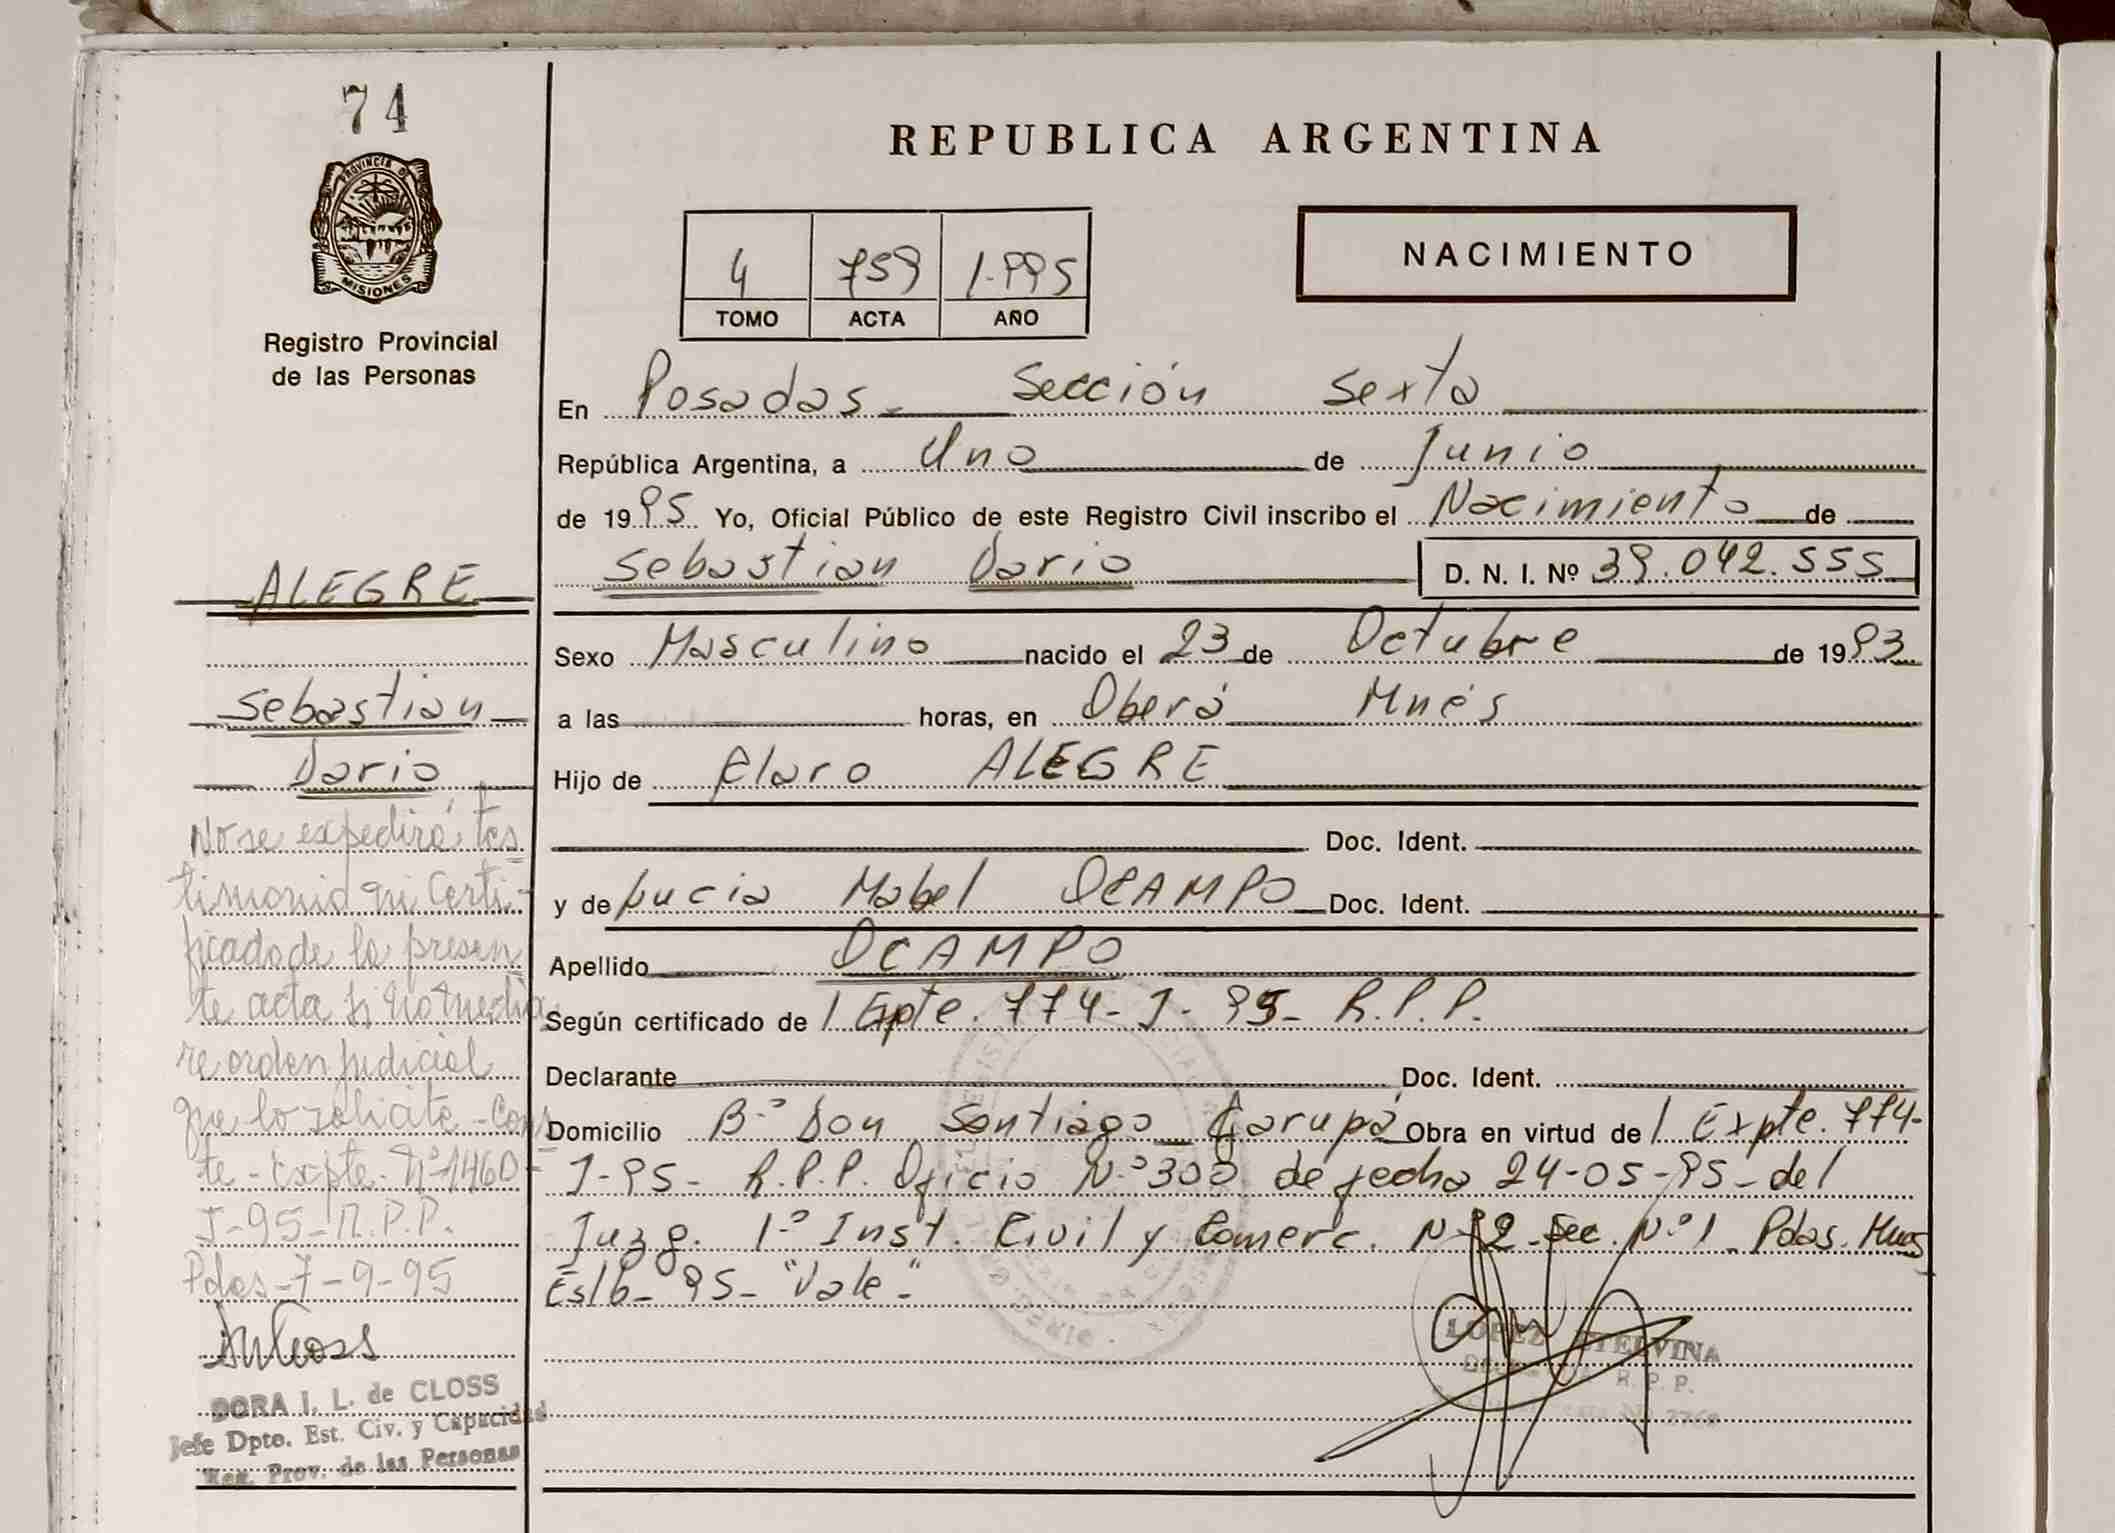 74
PROVINCIA DE
MISIONES
Registro Provincial
de las Personas
ALEGRE
Sebastian
Dario
No se expedirá tes
timonio ni Certi-
ficado de la presen
te acta si no media
re orden judicial
que lo solicite - Cons
te - Expte. Nº 1460-
J-95-R.P.P.
Pdas-7-9-95
DORA I. L. de CLOSS
Jefe Dpto. Est. Civ. y Capacidad
Reg. Prov. de las Personas
REPUBLICA ARGENTINA
4 759 1.995
TOMO ACTA AÑO
NACIMIENTO
En Posadas - Sección Sexta
República Argentina, a Uno de Junio
de 1995 Yo, Oficial Público de este Registro Civil inscribo el Nacimiento de
Sebastian Dario D. N. I. Nº 39.042.555
Sexo Masculino nacido el 23 de Octubre de 1993
a las horas, en Oberá Mnes
Hijo de Claro ALEGRE
Doc. Ident.
y de Lucia Mabel OCAMPO Doc. Ident.
Apellido OCAMPO
Según certificado de / Expte. 774-J-95- R.P.P.
Declarante Doc. Ident.
Domicilio Bº Don Santiago - Garupá Obra en virtud de / Expte. 774-
J-95- R.P.P. Oficio N.º 300 de fecha 24-05-95- del
Juzg. 1º Inst. Civil y Comerc. Nº 2 Sec. N.º 1 Pdas. Mnes
Es/b- 95- "Vale"-
LOPEZ ETELVINA
R. P. P.